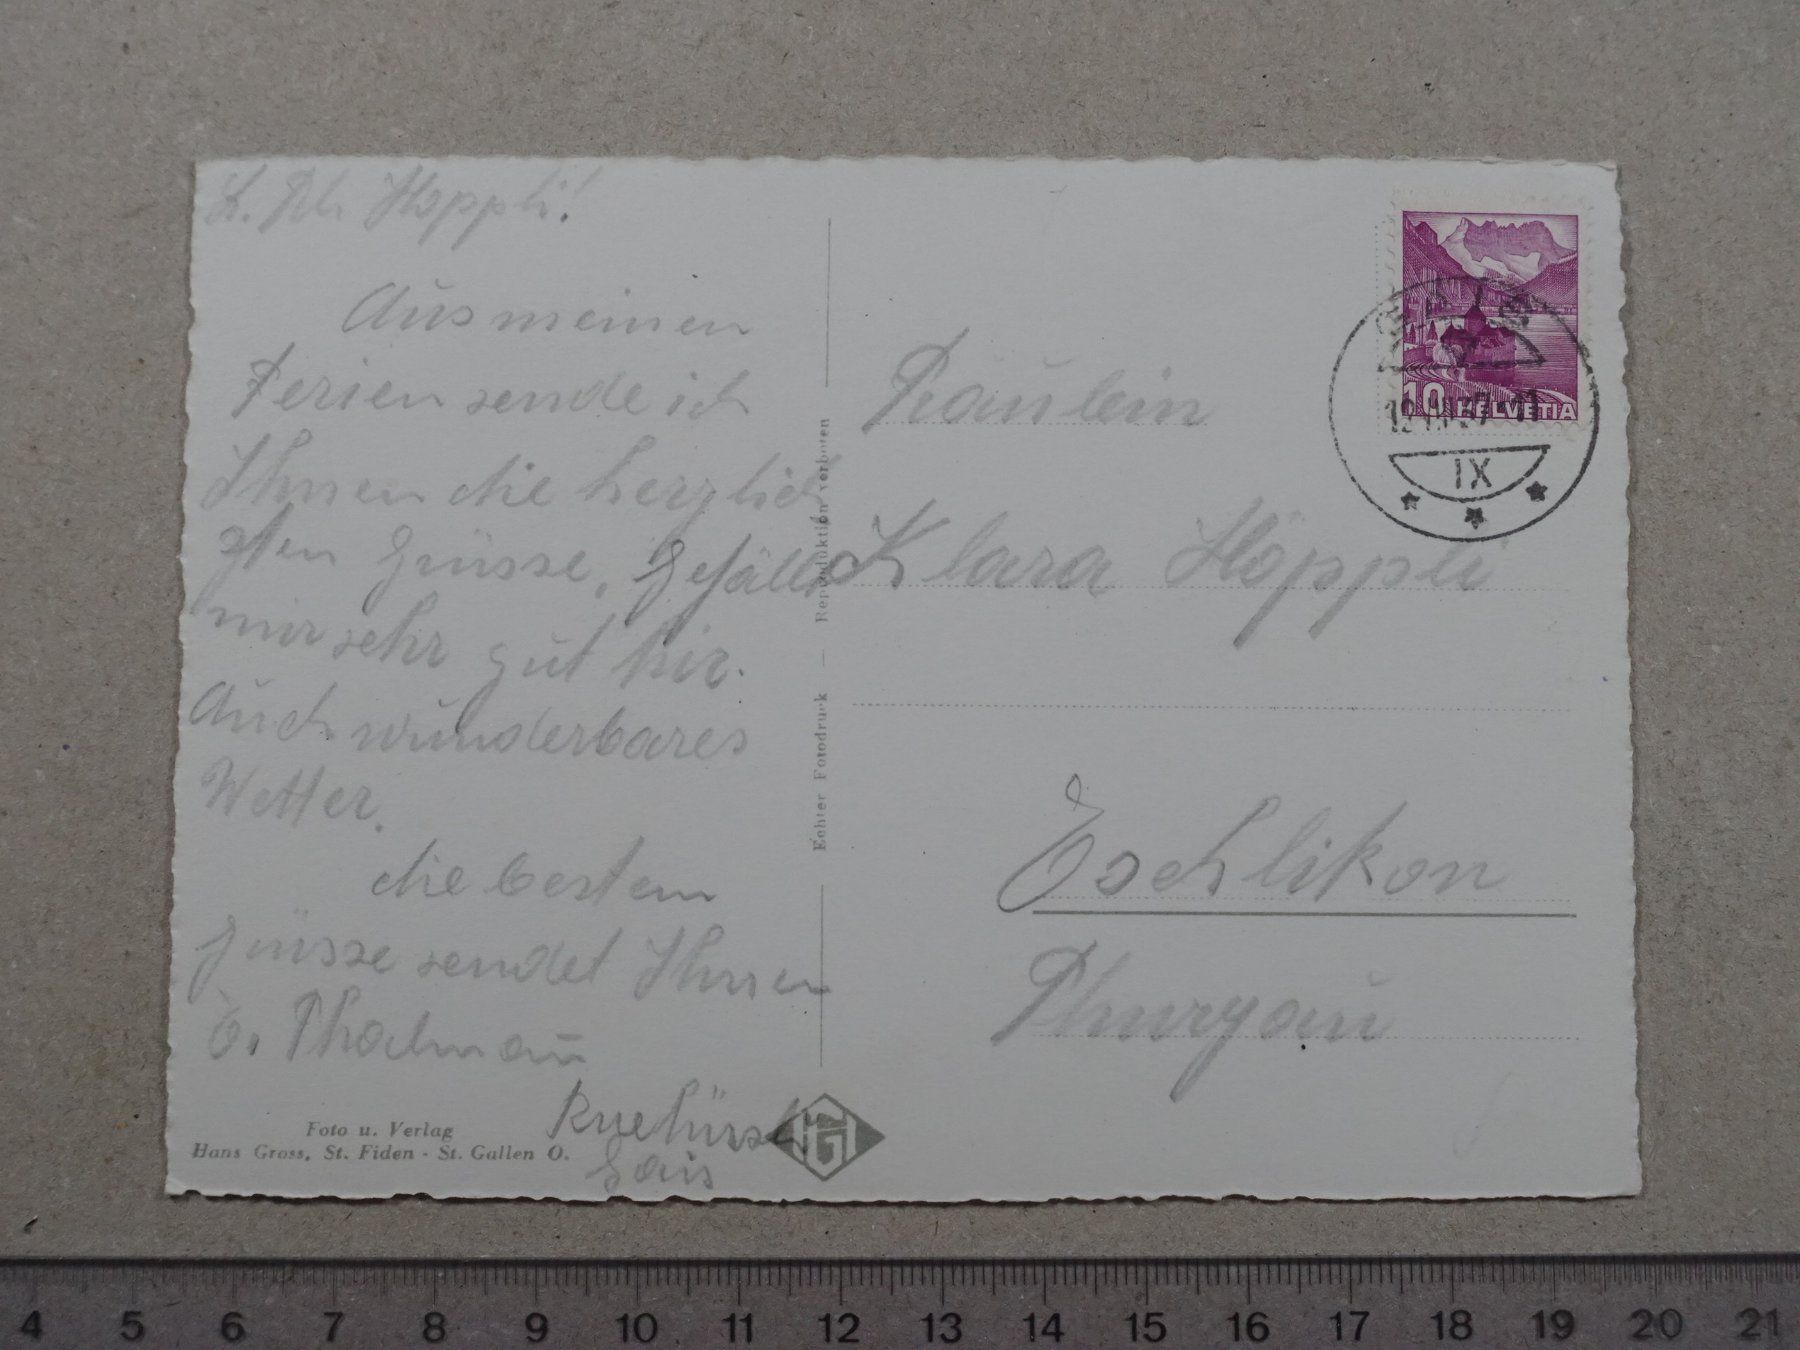 L. Frl. Höppli!
Aus meinen
Ferien sende ich
Ihnen die herzlich
sten Grüsse. Gefällt
mir sehr gut hir.
Auch wunderbares
Wetter.
die besten
Grüsse sendet Ihnen
E. Thalmann
Gais
Foto u. Verlag
Hans Gross, St. Fiden - St. Gallen O.
Echter Fotodruck — Reproduktion verboten
HG
10 HELVETIA
GAIS
IX
Fräulein
Klara Höppli
Eschlikon
Thurgau
4 5 6 7 8 9 10 11 12 13 14 15 16 17 18 19 20 21